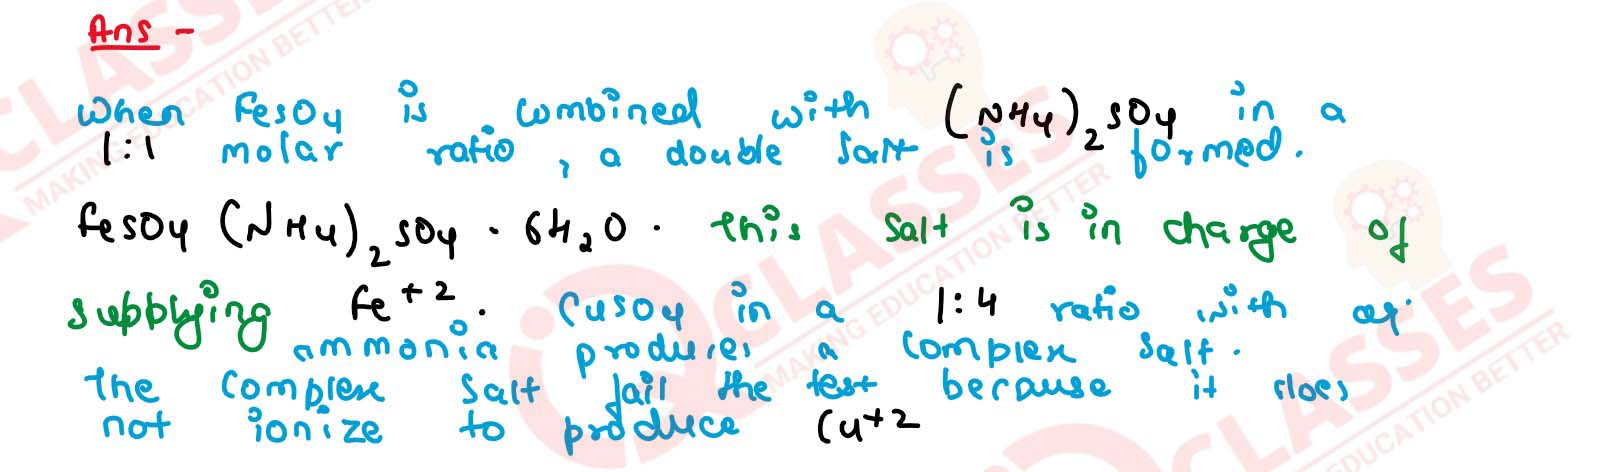 Ans -
When FeSO4 is combined with (NH4)2SO4 in a
1:1 molar ratio, a double salt is formed.
FeSO4 (NH4)2SO4 · 6H2O. This salt is in charge of
supplying Fe+2. CuSO4 in a 1:4 ratio with aq.
ammonia produces a complex salt.
The complex salt fail the test because it does
not ionize to produce Cu+2
CLASSES
MAKING EDUCATION BETTER
CLASSES
MAKING EDUCATION BETTER
CLASSES
EDUCATION BETTER